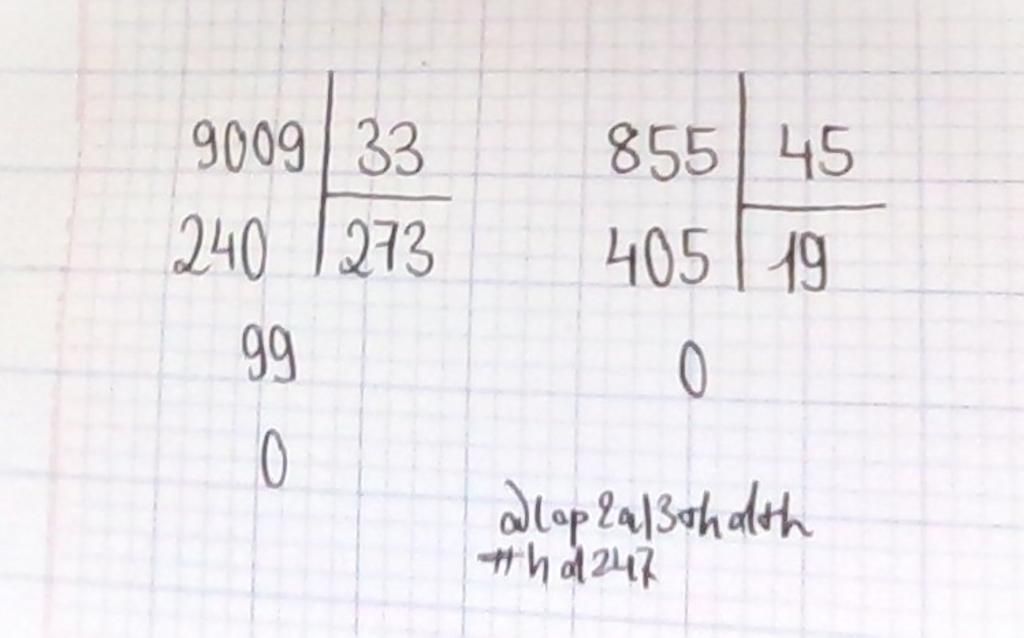 9009 33
240 273
99
0
855 45
405 19
0
#hd247